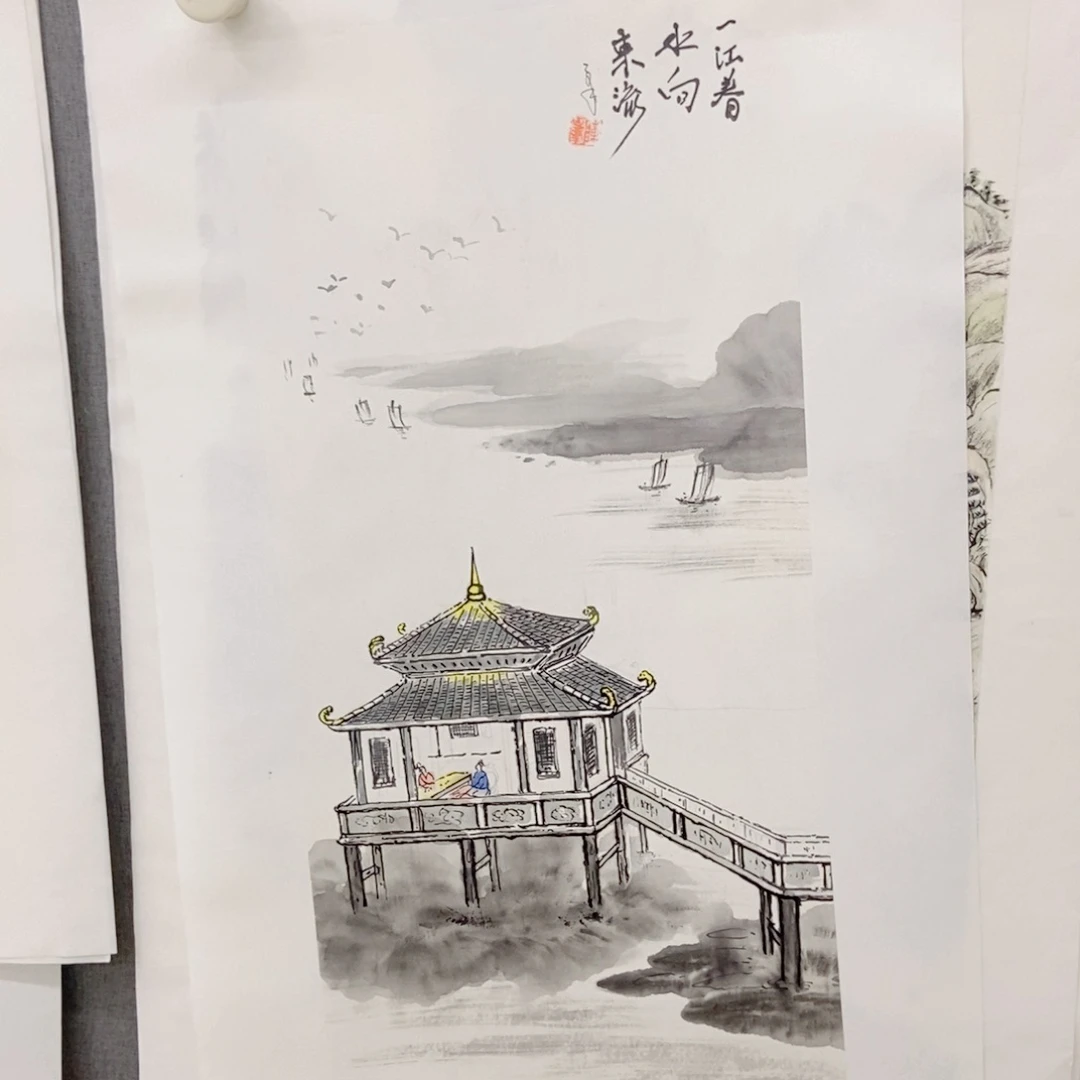 一江春
水向
東流